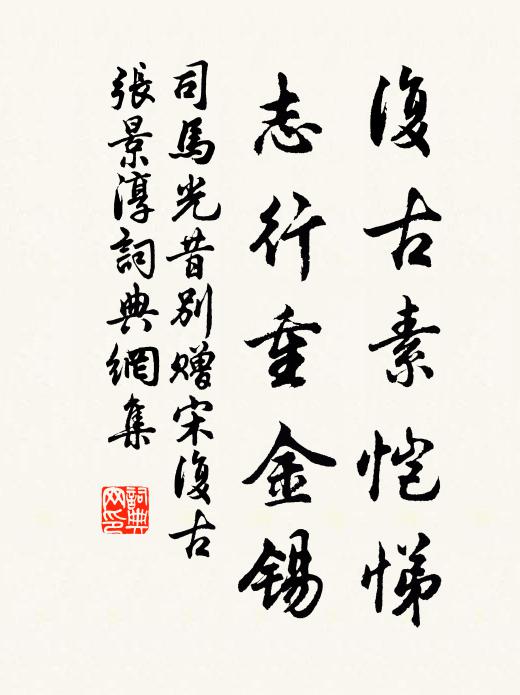 復古素愷悌
志行重金錫
司馬光昔別贈宋復古
張景淳詞典網集
詞典網印